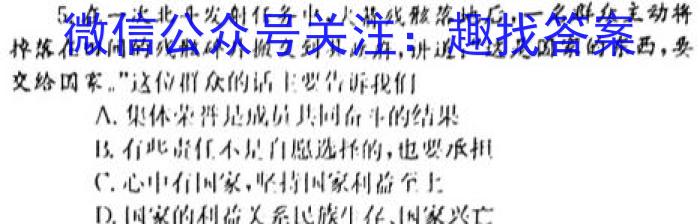 5.在一次北斗发射任务中,火箭残骸落地后,一名群众主动将
掉落在
微信公众号关注：趣找答案
讲道,"这是国家的东西,要
交给国家。"这位群众的话主要告诉我们
A.集体荣誉是成员共同奋斗的结果
B.有些责任不是自愿选择的,也要承担
C.心中有国家,坚持国家利益至上
D.国家的利益关系民族生存、国家兴亡